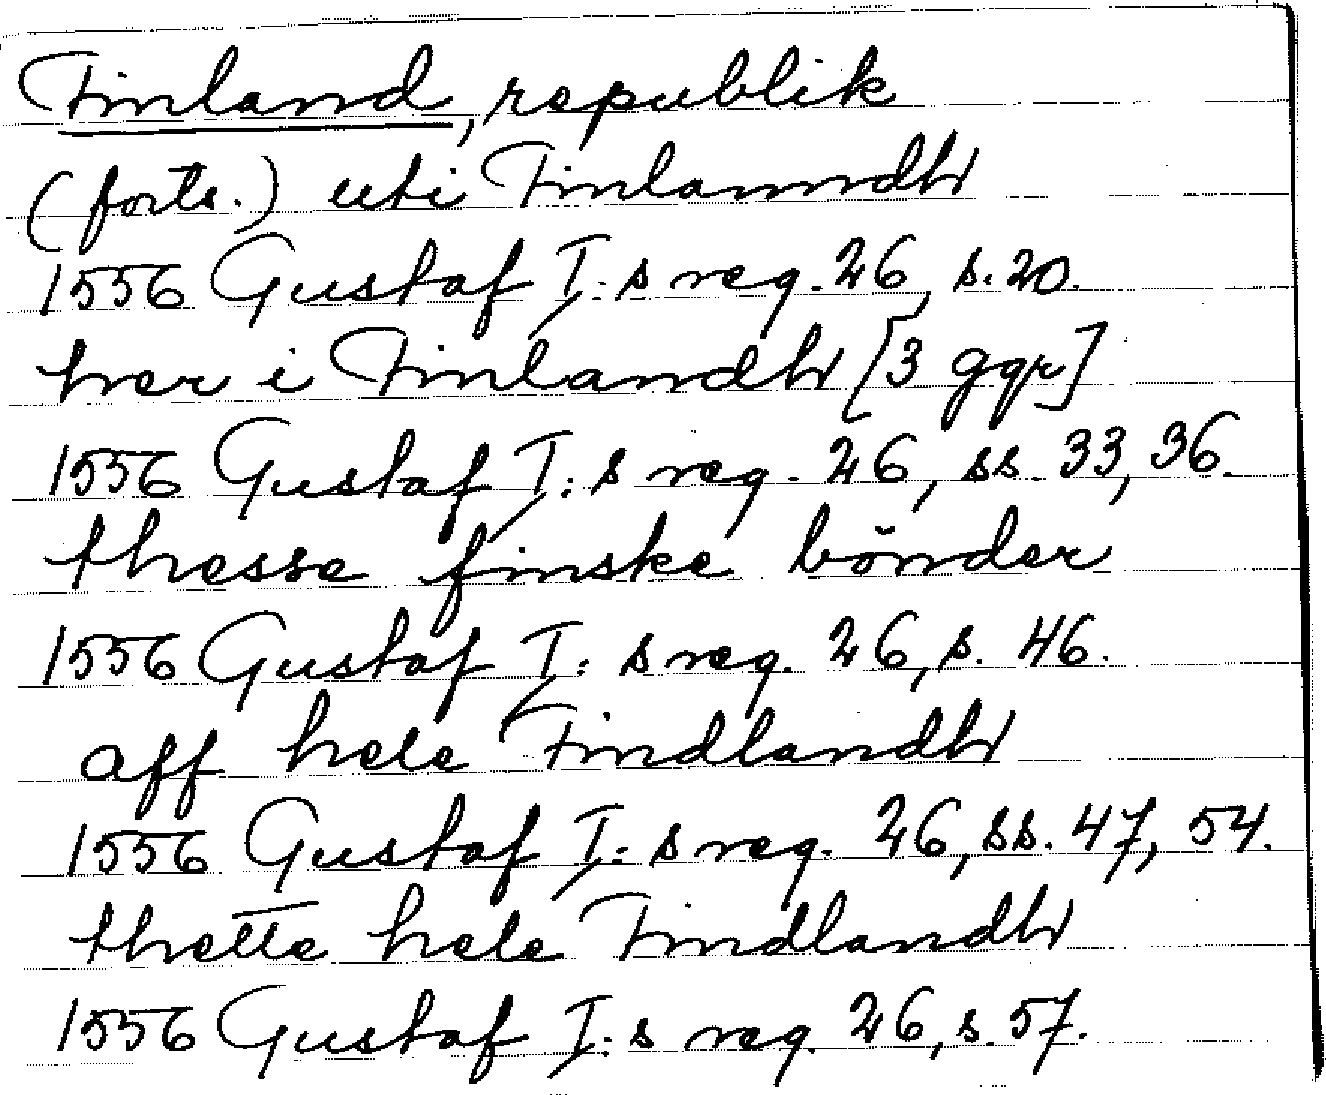 Finland, republik
(forts.) uti Finlanndh
1556 Gustaf I:s reg. 26, s. 20.
her i Finlandh [3 ggr]
1556 Gustaf I:s reg. 26, ss. 33, 36.
thesse finske bönder
1556 Gustaf I:s reg. 26, s. 46.
aff hele Findlandh
1556 Gustaf I:s reg. 26, ss. 47, 54.
thette hele Findlandh
1556 Gustaf I:s reg. 26, s. 57.